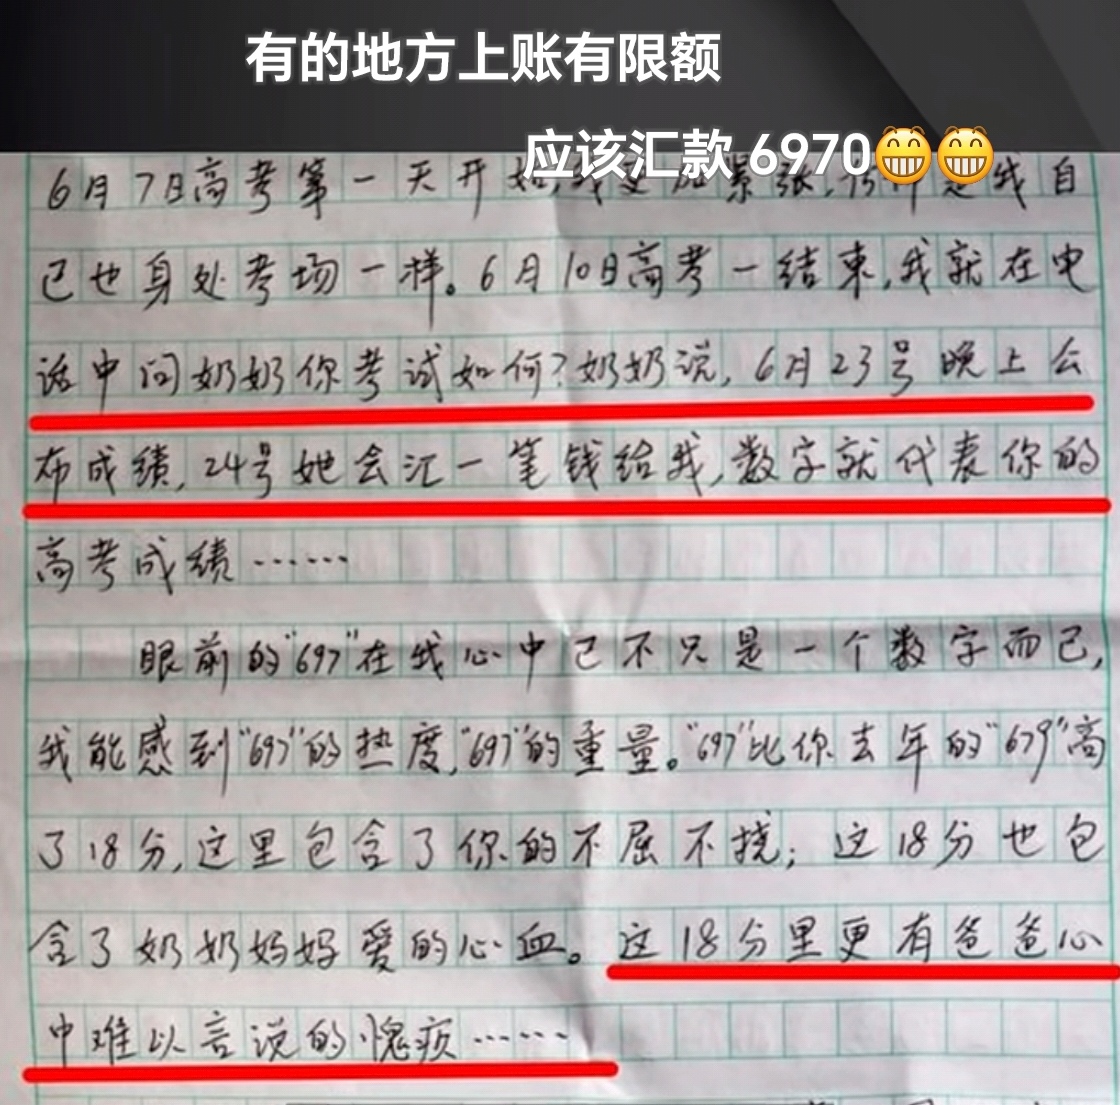 有的地方上账有限额
应该汇款 6970😁😁
6月7日高考第一天开始,我更加紧张,仿佛是我自
己也身处考场一样。6月10日高考一结束,我就在电
话中问奶奶你考试如何?奶奶说,6月23号晚上公
布成绩,24号她会汇一笔钱给我,数字就代表你的
高考成绩……
眼前的"697"在我心中已不只是一个数字而已,
我能感到"697"的热度,"697"的重量。"697"比你去年的"679"高
了18分,这里包含了你的不屈不挠;这18分也包
含了奶奶妈妈爱的心血。这18分里更有爸爸心
中难以言说的愧疚……